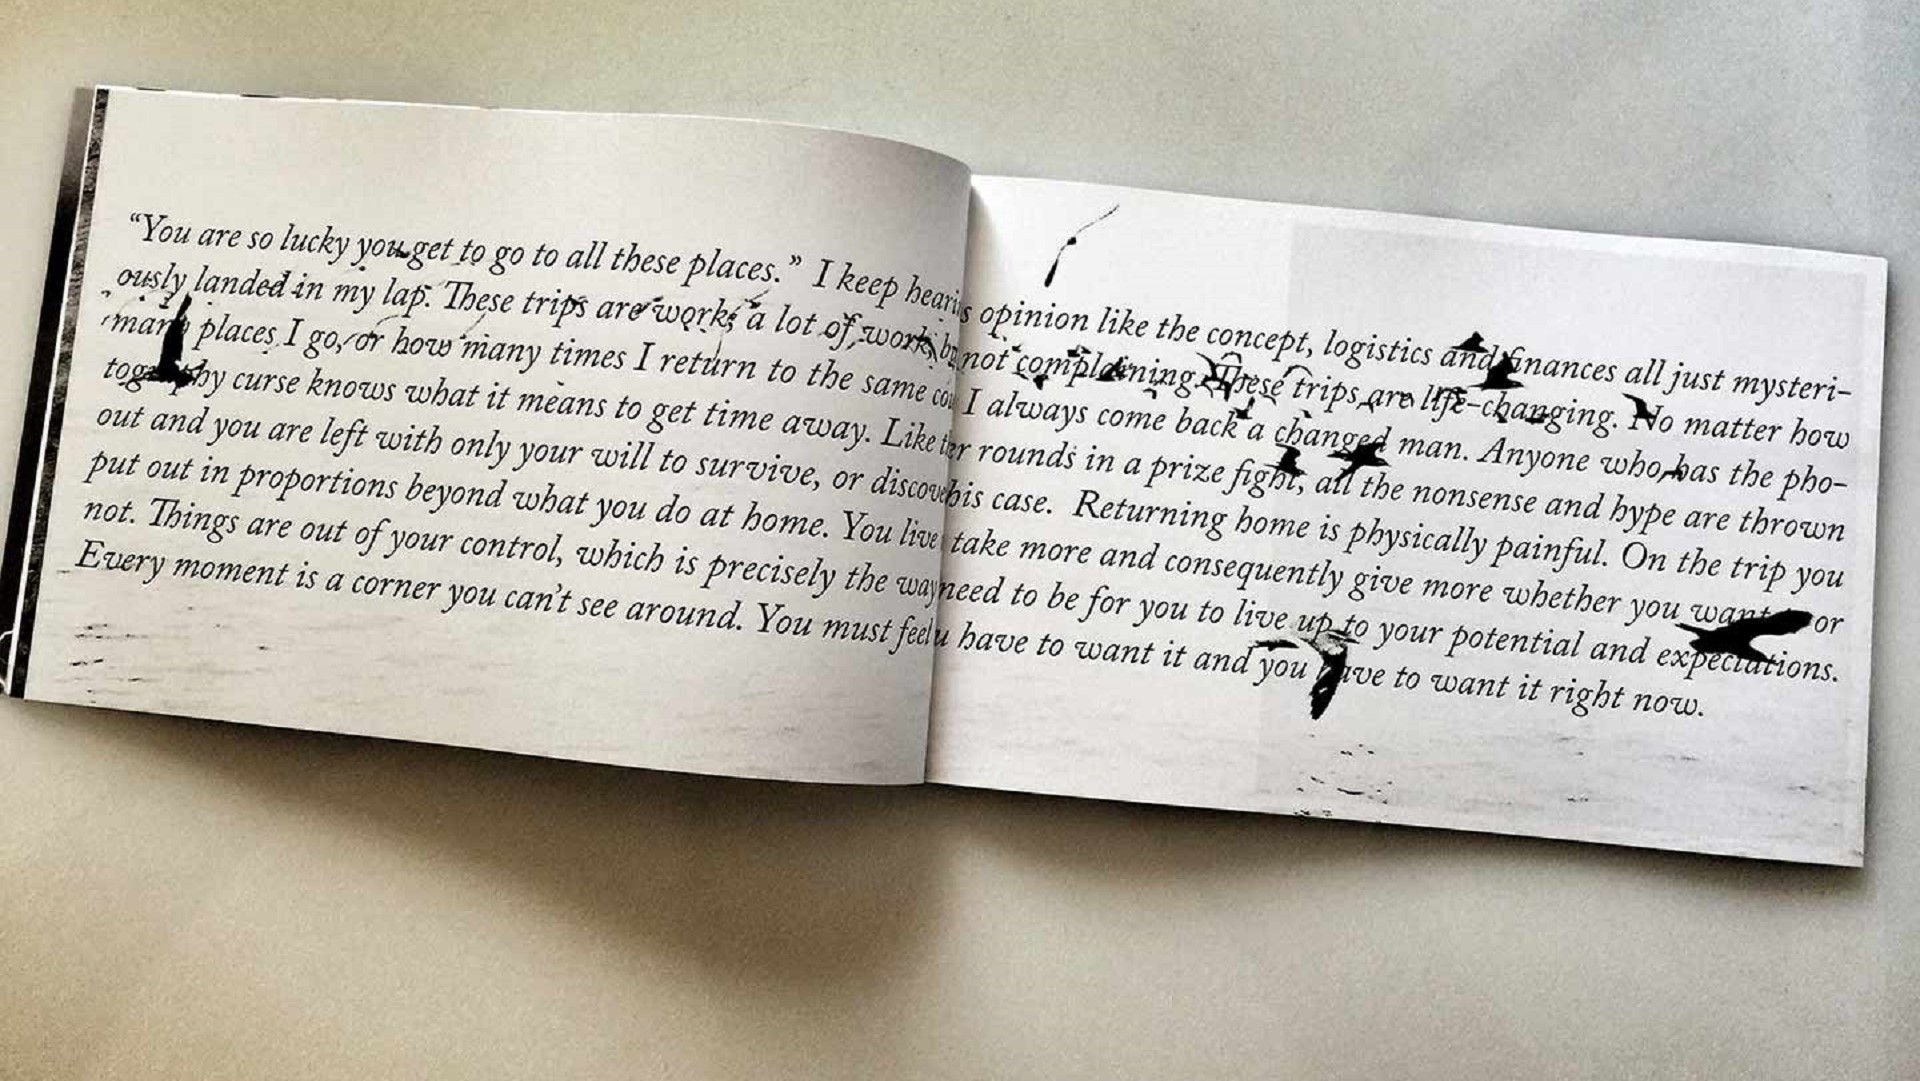 “You are so lucky you get to go to all these places.” I keep opinion like the concept, logistics and finances all just mysteri-
ously landed in my lap. These trips are work; a lot of work, not complaining. These trips are life-changing. No matter how
many places I go, or how many times I return to the same I always come back a changed man. Anyone who has the pho-
tography curse knows what it means to get time away. Like rounds in a prize fight, all the nonsense and hype are thrown
out and you are left with only your will to survive, or case. Returning home is physically painful. On the trip you
put out in proportions beyond what you do at home. You live take more and consequently give more whether you want or
not. Things are out of your control, which is precisely the way need to be for you to live up to your potential and expectations.
Every moment is a corner you can’t see around. You must feel have to want it and you have to want it right now.